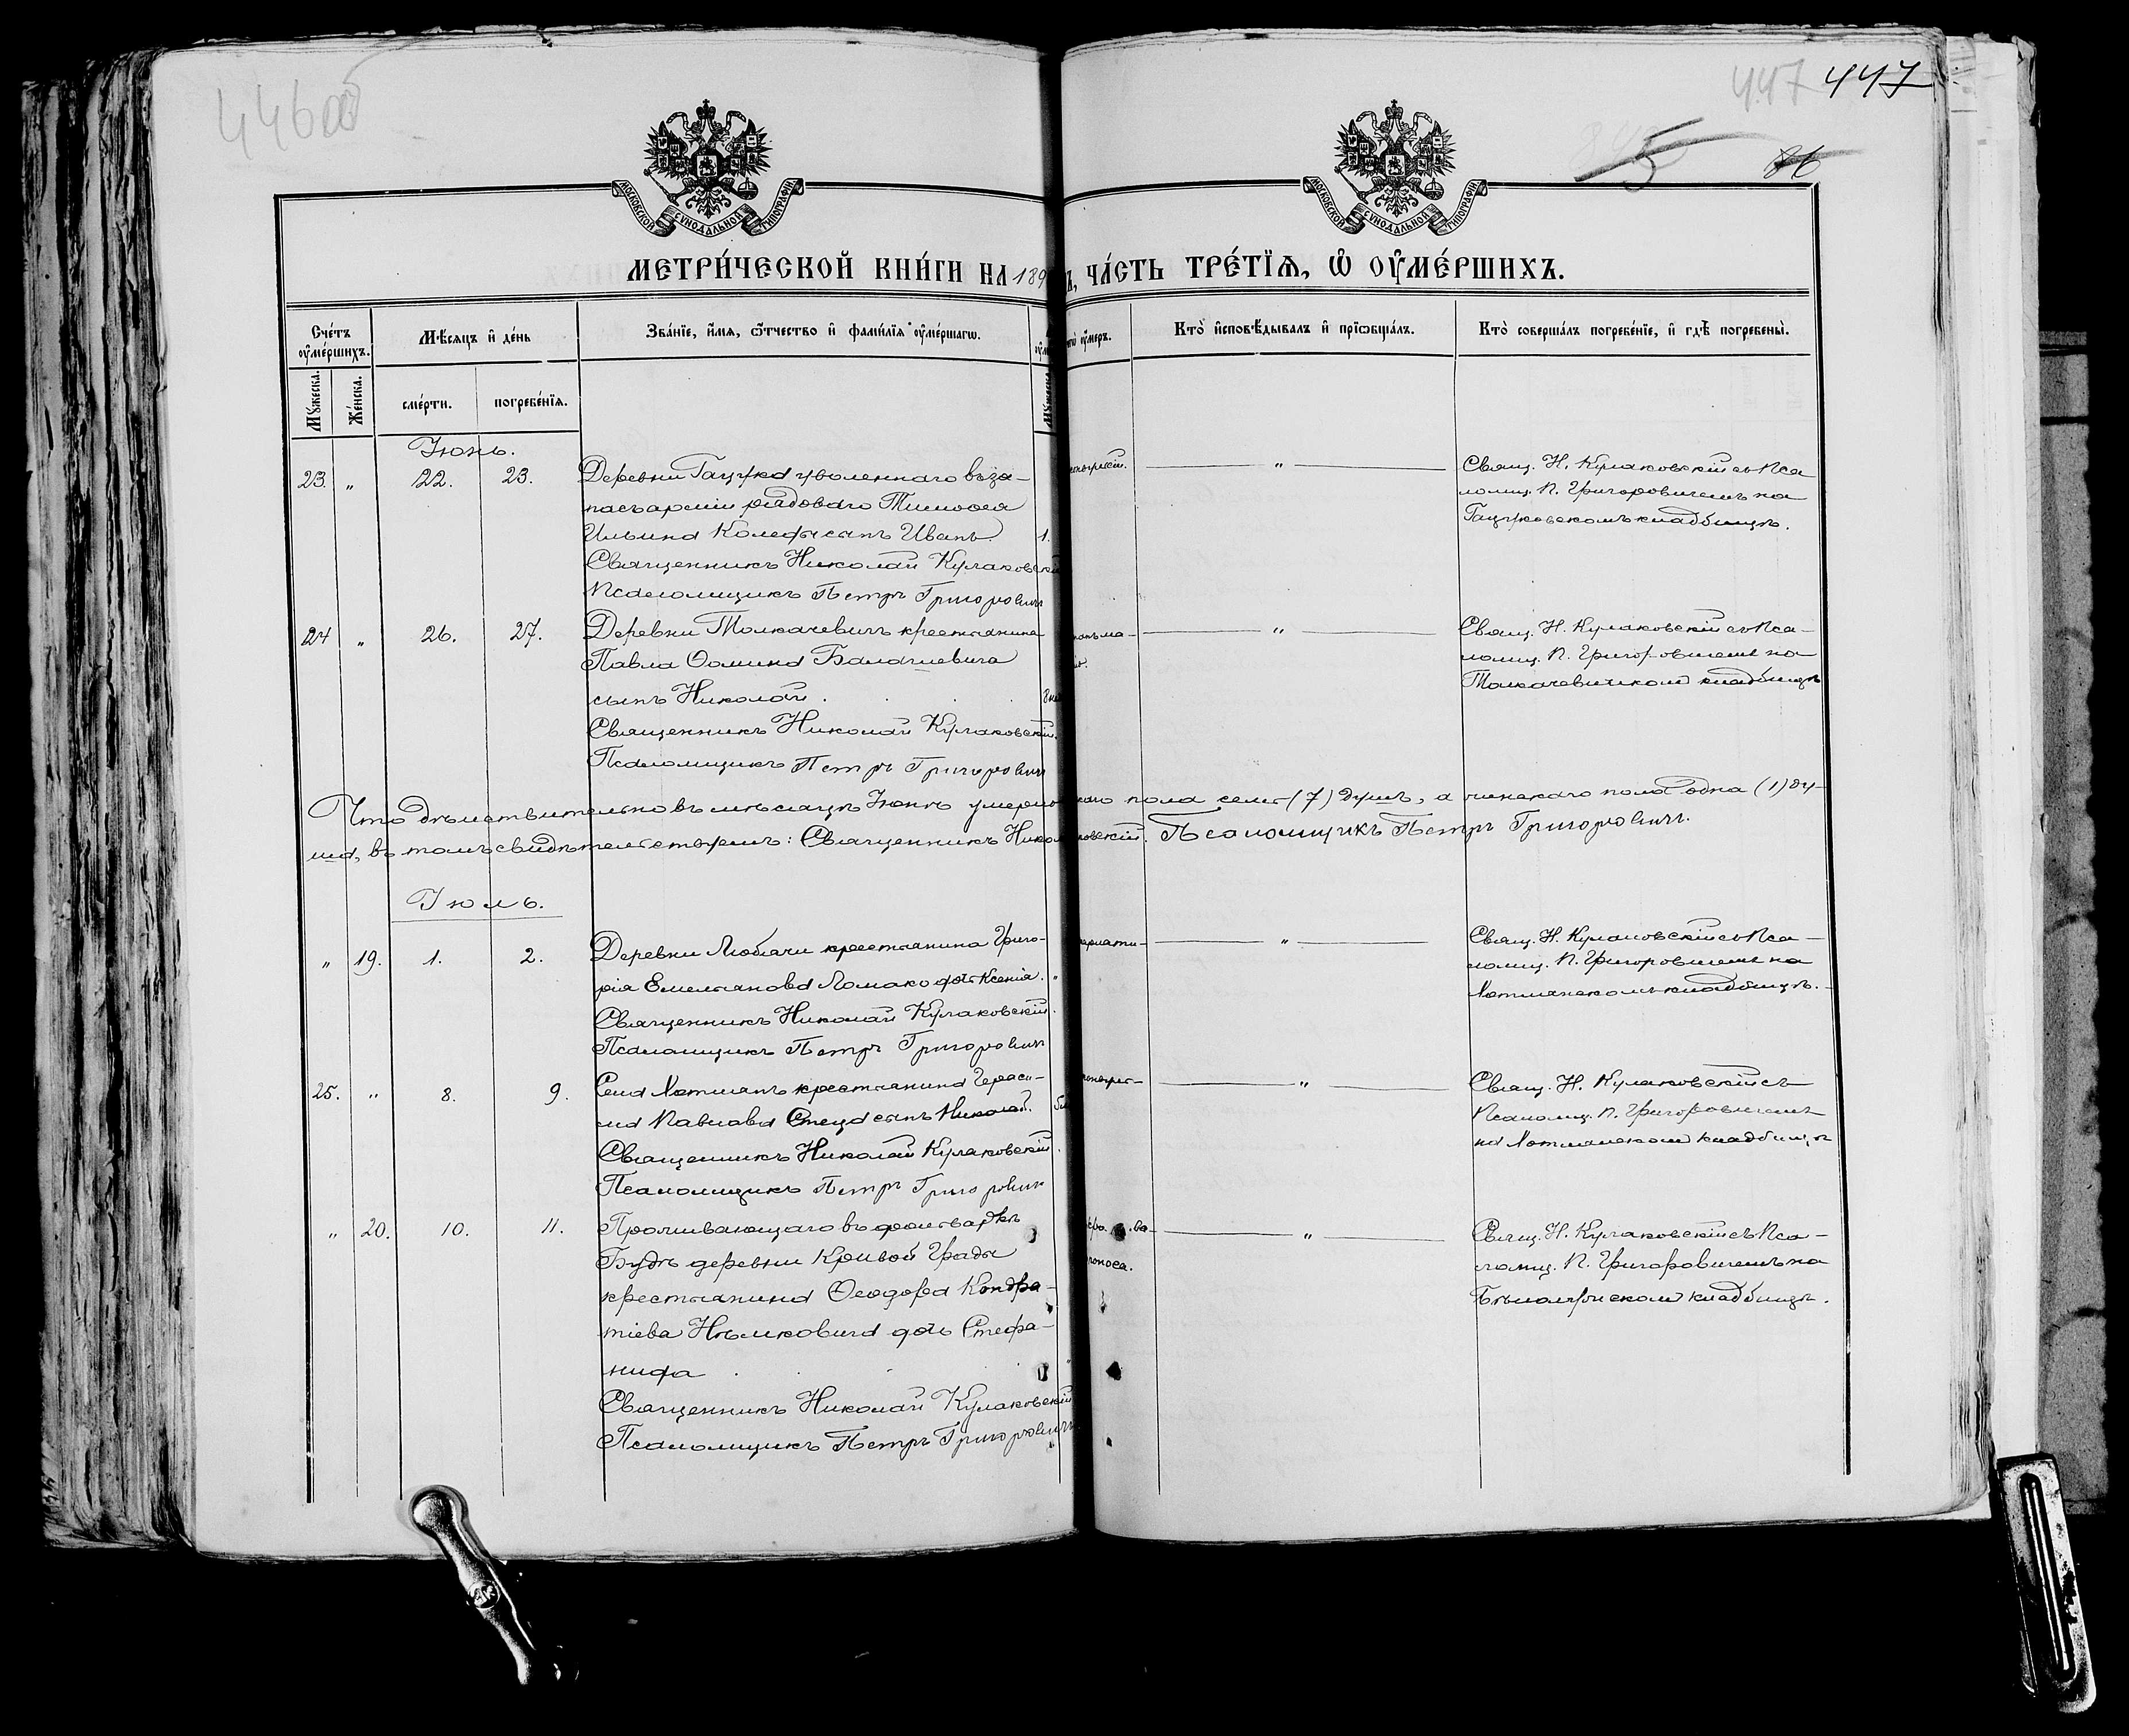 446об
447 447
845 86
МОСКОВСКОЙ СѴНОДАЛЬНОЙ ТИПОГРАФІИ
МОСКОВСКОЙ СѴНОДАЛЬНОЙ ТИПОГРАФІИ
МЕТРИ́ЧЕСКОЙ КНИ́ГИ НА 189
Ъ, ЧА́СТЬ ТРЕ́ТЇѦ, Ѽ ОУ҆МЕ́РШИХЪ.
Сче́тъ оу҆ме́ршихъ.
Мꙋ́жеска.
Же́нска.
Мѣ́сѧцъ и҆ де́нь
сме́рти.
погребе́нїѧ.
Зва́нїе, и҆́мѧ, ѻ҆́тчество и҆ фамі́лїѧ оу҆ме́ршагѡ.
Мꙋ́жеска
оу҆́меръ.
Кто̀ и҆сповѣ́дывалъ и҆ прїѡбща́лъ.
Кто̀ соверша́лъ погребе́нїе, и҆ гдѣ̀ погребены̀.
Іюнь.
23. „ 22. 23.
Деревни Гацука уволеннаго въ за-
пасъ арміи рядоваго Тимоѳея
Ильина Коледы сынъ Иванъ 1.
Священникъ Николай Кулаковскій
Псаломщикъ Петръ Григоровичъ
„
Свящ. Н. Кулаковскій съ Пса
ломщ. П. Григоровичемъ на
Гацуковскомъ кладбищѣ.
24 „ 26. 27.
Деревни Толкачевичъ крестьянина
Павла Ѳомина Балашевича
сынъ Николай
Священникъ Николай Кулаковскій.
Псаломщикъ Петръ Григоровичъ
„
Свящ. Н. Кулаковскій съ Пса-
ломщ. П. Григоровичемъ на
Толкачевичком кладбищѣ
Что дѣйствительно въ мѣсяцѣ Іюнѣ умерло пола семь (7) душъ, а женскаго пола одна (1) ду-
ша, въ томъ свидѣтельствуемъ: Священникъ Никол Псаломщикъ Петръ Григоровичъ.
Іюль.
„ 19. 1. 2.
Деревни Любачи крестьянина Григо-
рія Емельянова Ломако дочь Ксенія. „
Священникъ Николай Кулаковскій.
Псаломщикъ Петръ Григоровичъ
„
Свящ. Н. Кулаковскій съ Пса-
ломщ. П. Григоровичемъ на
Хотлянскомъ кладбищѣ.
25. „ 8. 9.
Села Хотлянъ крестьянина Гераси-
ма Павлова Стеца сынъ Николай.
Священникъ Николай Кулаковскій.
Псаломщикъ Петръ Григоровичъ
„
Свящ. Н. Кулаковскій съ
Псаломщ. П. Григоровичемъ
на Хотлянском кладбищѣ
„ 20. 10. 11.
Проживающаго въ фольваркѣ
Будѣ деревни Кривой Гряды
крестьянина Ѳеодора Кондра-
тіева Нѣмковича дочь Стефа-
нида
Священникъ Николай Кулаковскій
Псаломщикъ Петръ Григоровичъ
поноса.
„
Свящ. Н. Кулаковскій съ Пса-
ломщ. П. Григоровичемъ на
кладбищѣ.